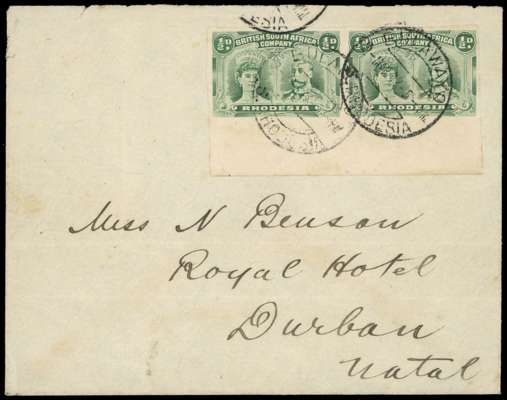 ESIA
½d BRITISH SOUTH AFRICA COMPANY ½d
RHODESIA
½d BRITISH SOUTH AFRICA COMPANY ½d
RHODESIA
RHODESIA
Miss N Benson
Royal Hotel
Durban
Natal